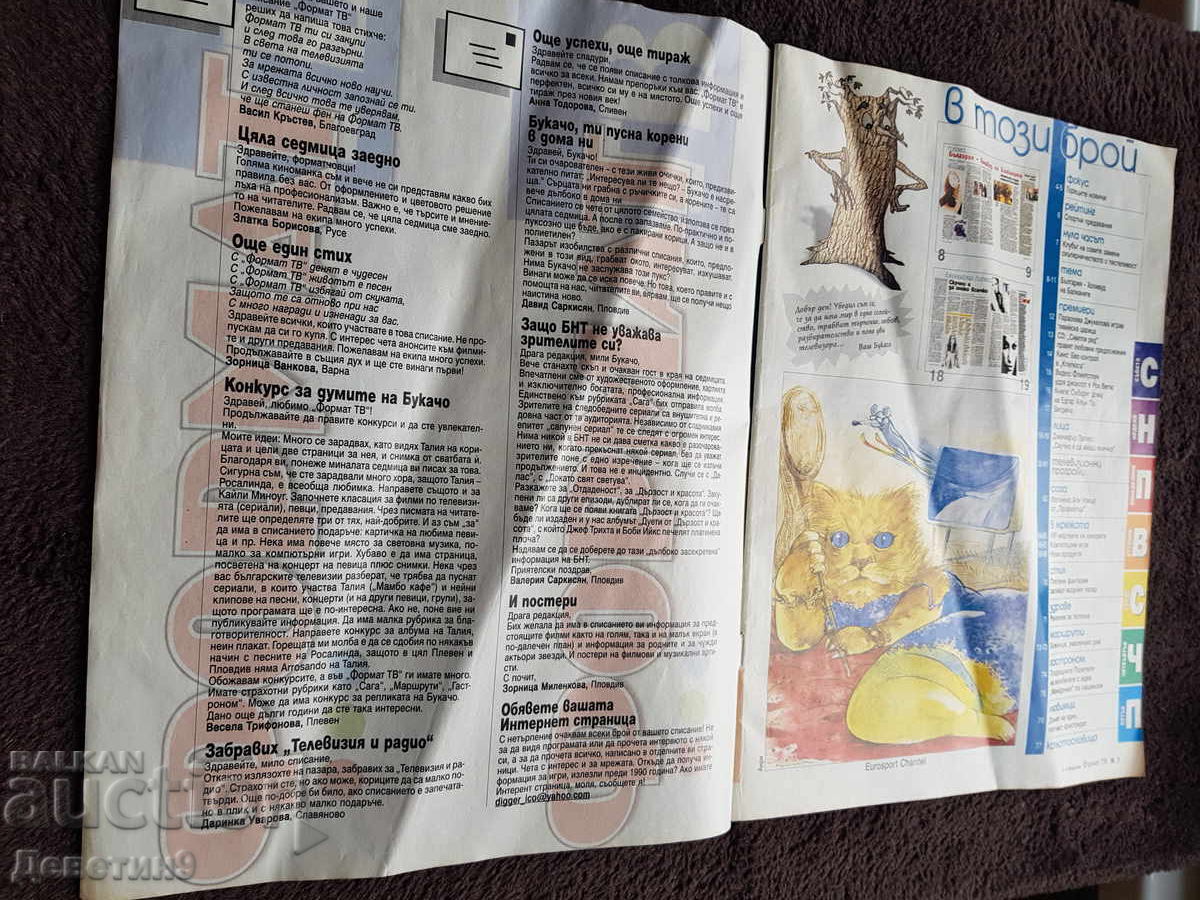 вашето и наше
списание „Формат ТВ"
реших да напиша това стихче:
Формат ТВ ти си закупи
и след това го разгърни.
В света на телевизията
ти се потопи.
За мрежата всичко ново научи.
С известна личност запознай се ти.
И след всичко това те уверявам,
че ще станеш фен на Формат ТВ.
Васил Кръстев, Благоевград
Цяла седмица заедно
Здравейте, форматовци!
Голяма киноманка съм и вече не си представям какво бих
правила без вас. От оформлението и цветовото решение
лъха на професионализъм. Важно е, че търсите и мнение-
то на читателите. Радвам се, че цяла седмица сме заедно.
Пожелавам на екипа много успехи.
Златка Борисова, Русе
Още един стих
С „Формат ТВ" денят е чудесен
С „Формат ТВ" животът е песен
С „Формат ТВ" избягай от скуката,
Защото те са отново при нас
С много награди и изненади за вас.
Здравейте всички, които участвате в това списание. Не про-
пускам да си го купя. С интерес чета анонсите към филми-
те и други предавания. Пожелавам на екипа много успехи.
Продължавайте в същия дух и ще сте винаги първи!
Зорница Ванкова, Варна
Конкурс за думите на Букачо
Здравей, любимо „Формат ТВ"!
Продължавайте да правите конкурси и да сте увлекател-
ни.
Моите идеи: Много се зарадвах, като видях Талия на кори-
цата и цели две страници за нея, и снимка от сватбата ѝ.
Благодаря ви, понеже миналата седмица ви писах за това.
Сигурна съм, че сте зарадвали много хора, защото Талия -
Росалинда, е всеобща любимка. Направете същото и за
Кайли Миноуг. Започнете класация за филми по телевизи-
ята (сериали), певци, предавания. Чрез писмата на читате-
лите ще определяте три от тях, най-добрите. И аз съм „за"
да има в списанието подаръче: картичка на любима певи-
ца и пр. Нека има повече място за световна музика, по-
малко за компютърни игри. Хубаво е да има страница,
посветена на концерт на певица плюс снимки. Нека чрез
вас българските телевизии разберат, че трябва да пуснат
сериали, в които участва Талия („Мамбо кафе") и нейни
клипове на песни, концерти (и на други певици, групи), за-
щото програмата ще е по-интересна. Ако не, поне вие ни
публикувайте информация. Да има малка рубрика за бла-
готворителност. Направете конкурс за албума на Талия,
неин плакат. Горещата ми молба е да се сдобия по някакъв
начин с песните на Росалинда, защото в цял Плевен и
Пловдив няма Arrosando на Талия.
Обожавам конкурсите, а във „Формат ТВ" ги имате много.
Имате страхотни рубрики като „Сага", „Маршрути", „Гаст-
роном". Може да има конкурс за репликата на Букачо.
Дано още дълги години да сте така интересни.
Весела Трифонова, Плевен
Забравих „Телевизия и радио"
Здравейте, мило списание,
Откакто излязохте на пазара, забравих за „Телевизия и ра-
дио". Страхотни сте, но ако може, кориците да са малко по-
твърди. Още по-добре би било, ако списанието е запечата-
но в плик и с някакво малко подаръче.
Даринка Уварова, Славяново
Още успехи, още тираж
Здравейте сладури,
Радвам се, че се появи списание с толкова информация и
всичко за всеки. Нямам препоръки към вас. „Формат ТВ" е
перфектен, всичко си му е на мястото. Още успехи и още
тираж през новия век!
Анна Тодорова, Сливен
Букачо, ти пусна корени
в дома ни
Здравей, Букачо!
Ти си очарователен - с тези живи очички, които, предизви-
кателно питат: „Интересува ли те нещо? - Букачо е насре-
ща." Сърцата ни грабна с ръчичките си, а корените - те са
вече дълбоко в дома ни
Списанието се чете от цялото семейство, използва се през
цялата седмица. А после го запазваме. По-практично и по-
луксозно ще бъде, ако е с пакирани корици. А защо не и в
полиетилен?
Пазарът изобилства с различни списания, които, предло-
жени в този вид, грабват окото, интересуват, изкушават.
Нима Букачо не заслужава този лукс?
Винаги може да се иска повече. Но това, което правите и с
помощта на нас, читателите ви, вярвам, ще се получи нещо
наистина ново.
Давид Саркисян, Пловдив
Защо БНТ не уважава
зрителите си?
Драга редакция, мили Букачо,
Вече станахте скъп и очакван гост в края на седмицата.
Впечатлени сме от художественото оформление, хартията
и изключително богатата, професионална информация.
Единствено към рубриката „Сага" бих отправила молба.
Зрителите на следобедните сериали са внушителна и ре-
довна част от тв аудиторията. Независимо от сподникавия
епитет „сапунен сериал" те се следят с огромен интерес.
Нима никой в БНТ не си дава сметка какво е разочарова-
нието ни, когато прекъснат някой сериал. Без да уважат
зрителите поне с едно изречение - кога ще се излъчи
продължението. И това не е инцидентно. Случи се с „Да-
лас", с „Докато свят светува".
Разкажете за "Отдаденост", за „Дързост и красота". Заку-
пени ли са други епизоди, дублират ли се, кога да ги очак-
ваме? Кога ще се появи книгата „Дързост и красота"? Ще
бъде ли издаден и у нас албумът „Дуети от „Дързост и кра-
сота", с който Джеф Трихта и Боби Ийкс печелят платинена
плоча?
Надявам се да се доберете до тази „дълбоко засекретена"
информация на БНТ.
Приятелски поздрав,
Валерия Саркисян, Пловдив
И постери
Драга редакция,
Бих желала да има в списанието ви информация за пред-
стоящите филми както на голям, така и на малък екран (в
по-далечен план) и информация за родните и за чужди
актьори звезди. И постери на филмови и музикални арти-
сти.
С почит,
Зорница Миленкова, Пловдив
Обявете вашата
Интернет страница
С нетърпение очаквам всеки брой от вашето списание! Не
за да видя програмата или да прочета интервюто с някой
а за да прочета всичко, написано в отделните ви стра-
ници. Чета с интерес и за мрежата. Откъде да получа ин-
формация за игри, излезли преди 1990 година? Ако имате
Интернет страница, моля, съобщете я!
digger_ico@yahoo.com
в този брой
Добър ден! Убедил съм се,
че за да има мир в едно семей-
ство, трябват търпение, любов,
разбирателство и поне два
телевизора...
Ваш Букачо
8
9
18
19
Eurosport Channel
фокус
рейтинг
Спортни предавания
нула часът
тема
България - Холивуд
на Балканите
премиери
лица
телевизионни
програми
сага
в мрежата
стил
здраве
маршрути
гастроном
любимци
кръстословица
BALKAN
auction
Деветин9